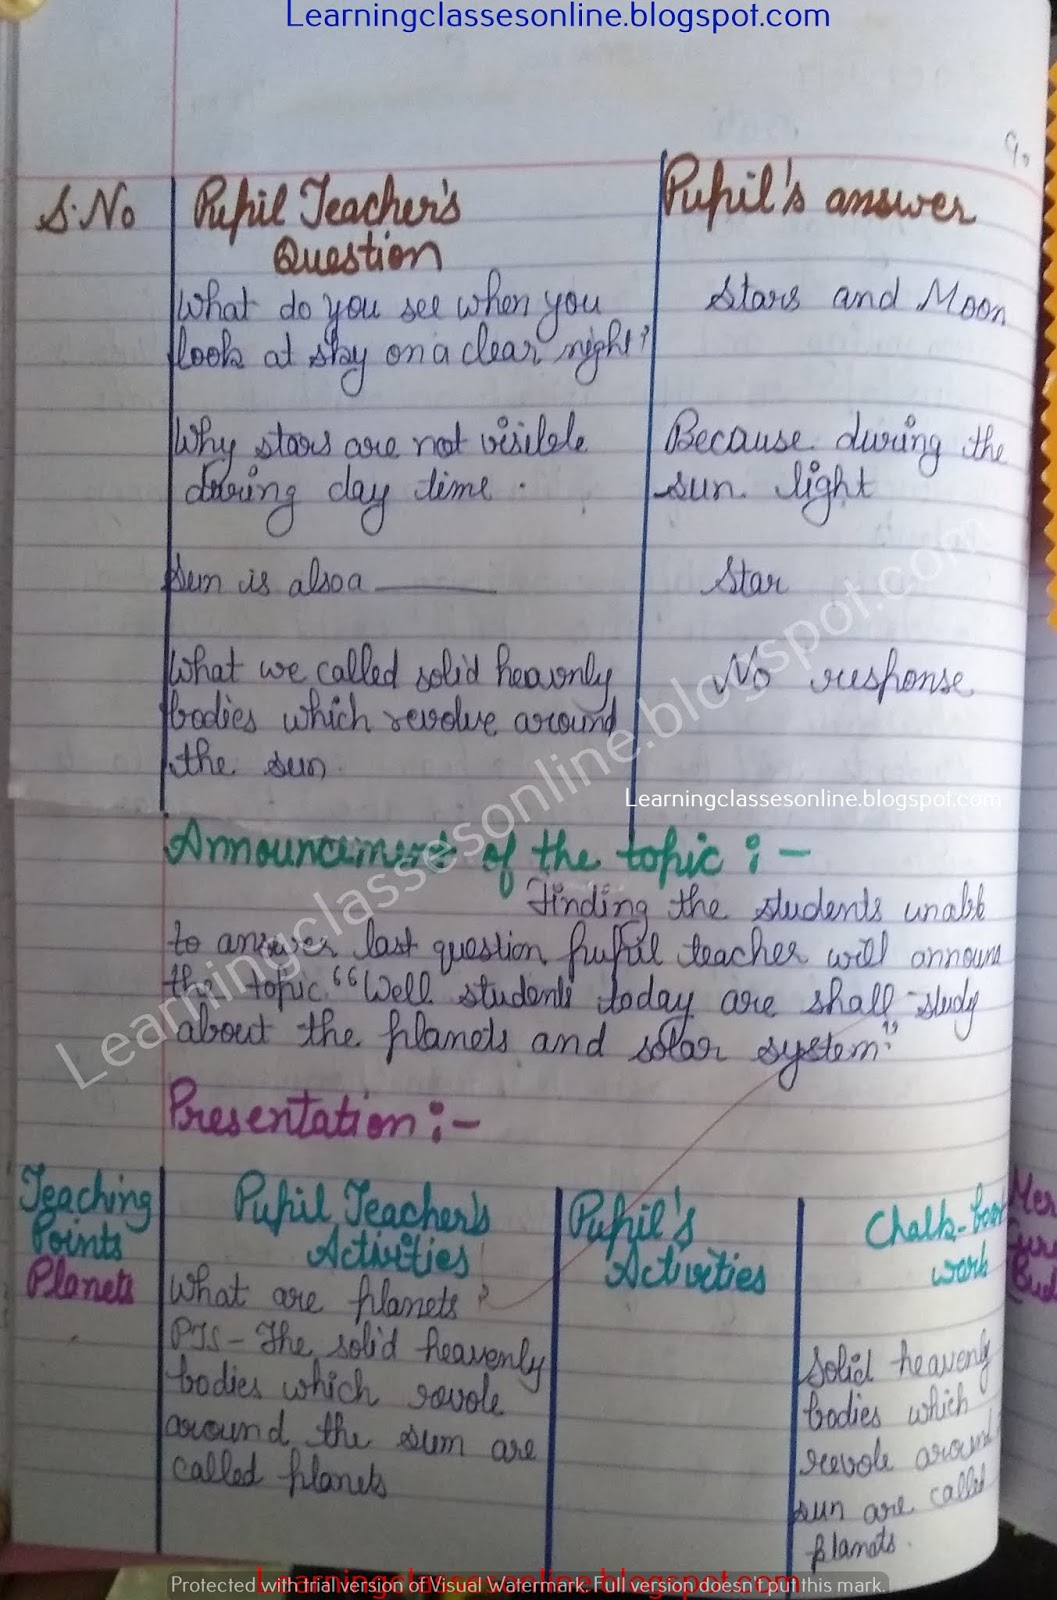 Learningclassesonline.blogspot.com
S.No
Pupil Teacher's
Question
Pupil's answer
What do you see when you
look at sky on a clear night?
Stars and Moon
Why stars are not visible
during day time.
Because during the
sun light
Sun is also a ______
Star
What we called solid heavenly
bodies which revolve around
the sun.
No response
Learningclassesonline.blogspot.com
Learningclassesonline.blogspot.com
Announcement of the topic :-
Finding the students unable
to answer last question pupil teacher will announ
the topic. "Well students today are shall study
about the planets and solar system."
Presentation :-
Teaching
Points
Pupil Teacher's
Activities
Pupil's
Activities
Chalk-boar
work
Planets
What are planets?
PTS - The solid heavenly
bodies which revole
around the sun are
called planets
Solid heavenly
bodies which
revole around
sun are called
planets.
Learningclassesonline.blogspot.com
Protected with trial version of Visual Watermark. Full version doesn't put this mark.